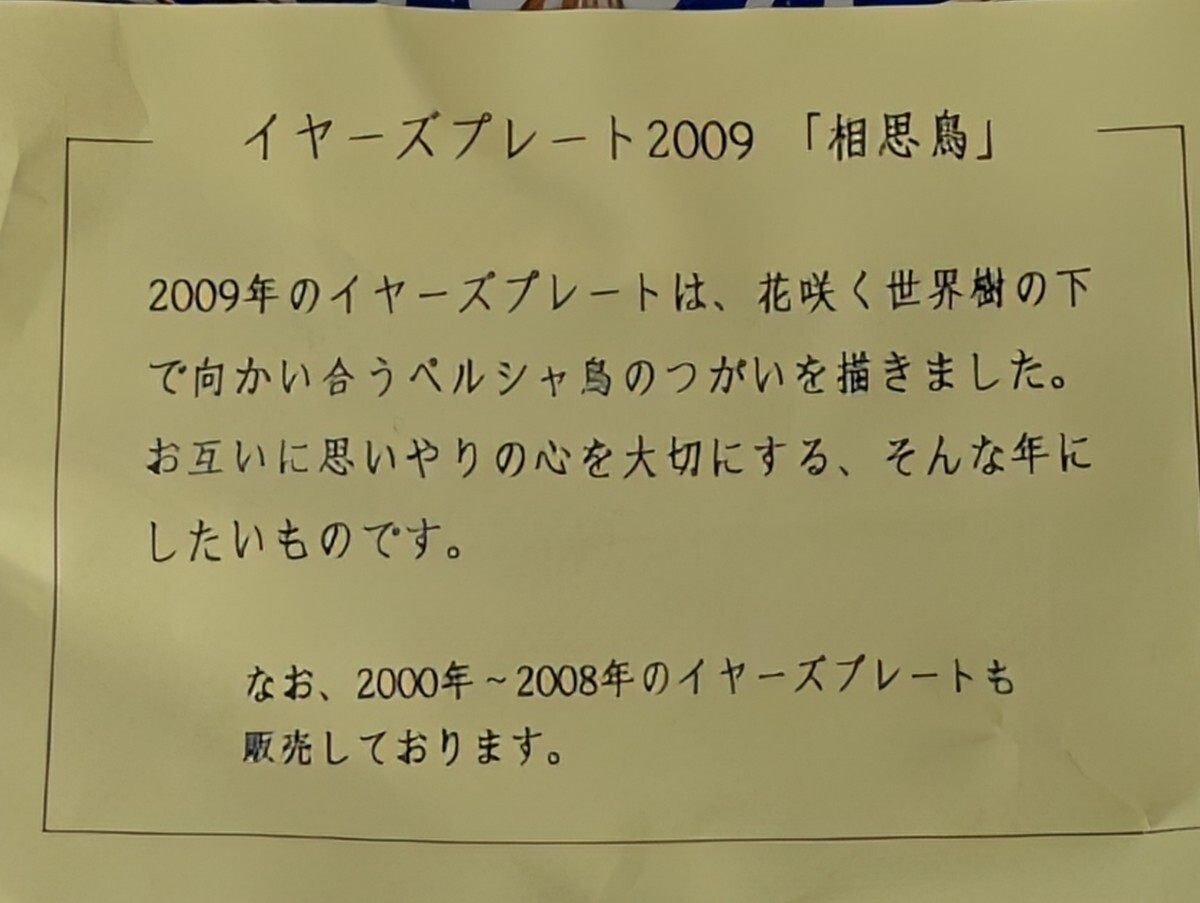 イヤーズプレート2009 「相思鳥」
2009年のイヤーズプレートは、花咲く世界樹の下
で向かい合うペルシャ鳥のつがいを描きました。
お互いに思いやりの心を大切にする、そんな年に
したいものです。
なお、2000年~2008年のイヤーズプレートも
販売しております。